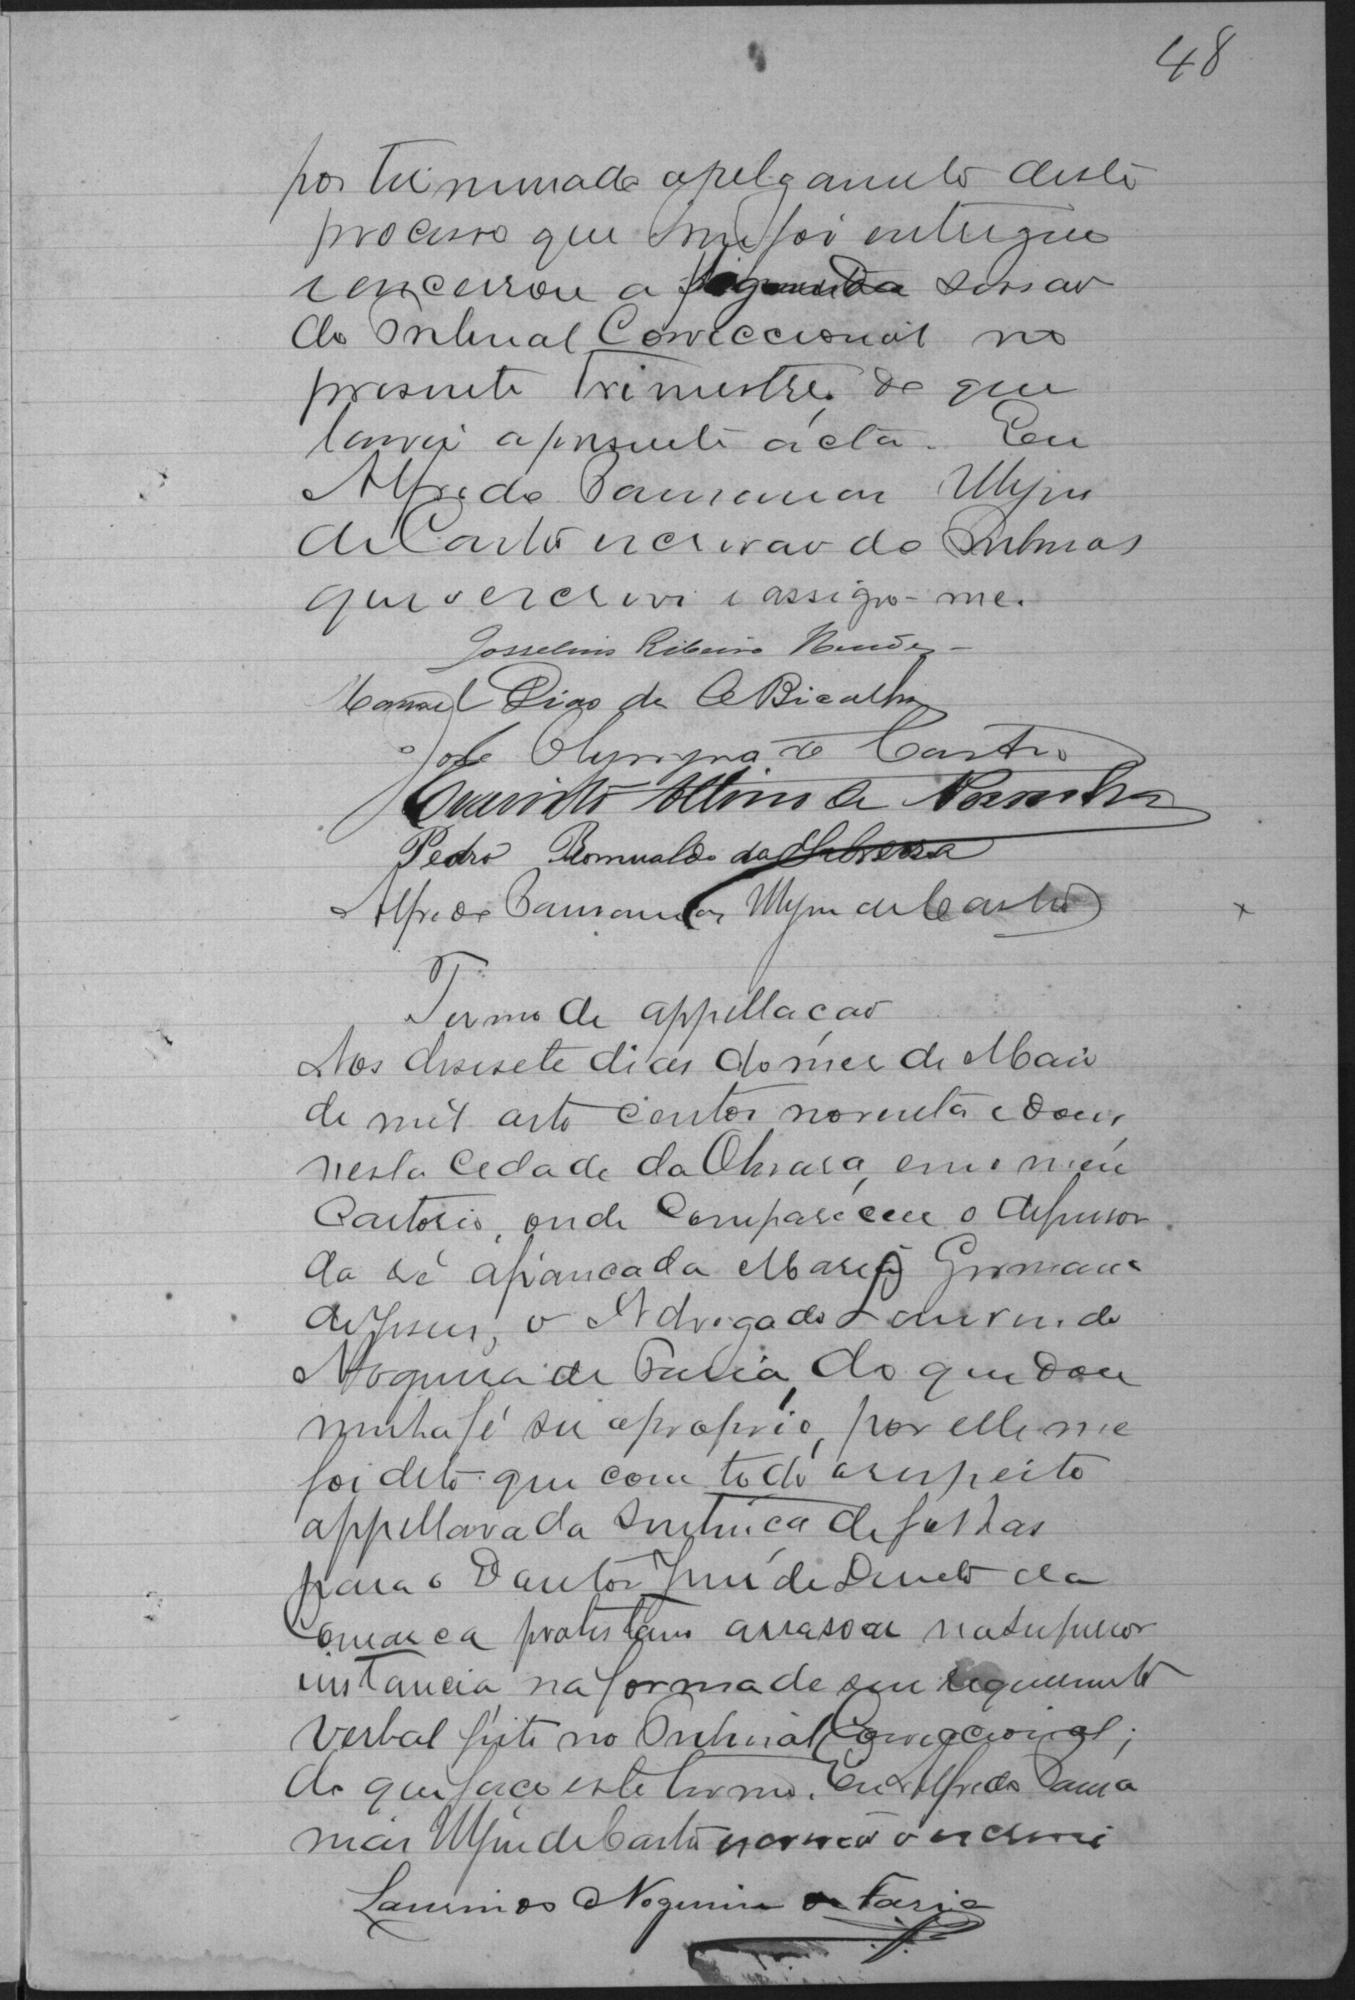 48
por terminado o julgamento deste
processo que me foi entregue
e encerrou a segunda sessao
do Tribunal Correccional no
presente trimestre, de que
lavrei a presente acta. Eu
Alfredo Pausanias
de Castro escrivao do Tribunal
que o escrevi e assigno-me.
Josselino Ribeiro Mendes
Manoel Dias de Bicalho
José Olympio de Castro
Evaristo de Noronha
Pedro Romualdo da
Alfredo Pausanias de Castro
Termo de appellacao
Aos desesete dias do mes de Maio
de mil oito centos noventa e dous,
nesta Cedade da Oliveira, em o meu
Cartorio, onde compareceu o defensor
da ré afiancada Maria Germana
de Jesus, o Advogado Laurindo
Nogueira de Faria, do que dou
minha fé ser o proprio, por elle me
foi dito que com todo o respeito
appellava da sentenca de folhas
para o Doutor Juiz de Direito da
Comarca protestam arrasoar na superior
instancia na forma de seu requerimento
verbal feito no Tribunal Correccional;
do que faco este termo. Eu Alfredo Pausa
nias de Castro escrivão o escrevi
Laurindo Nogueira de Faria